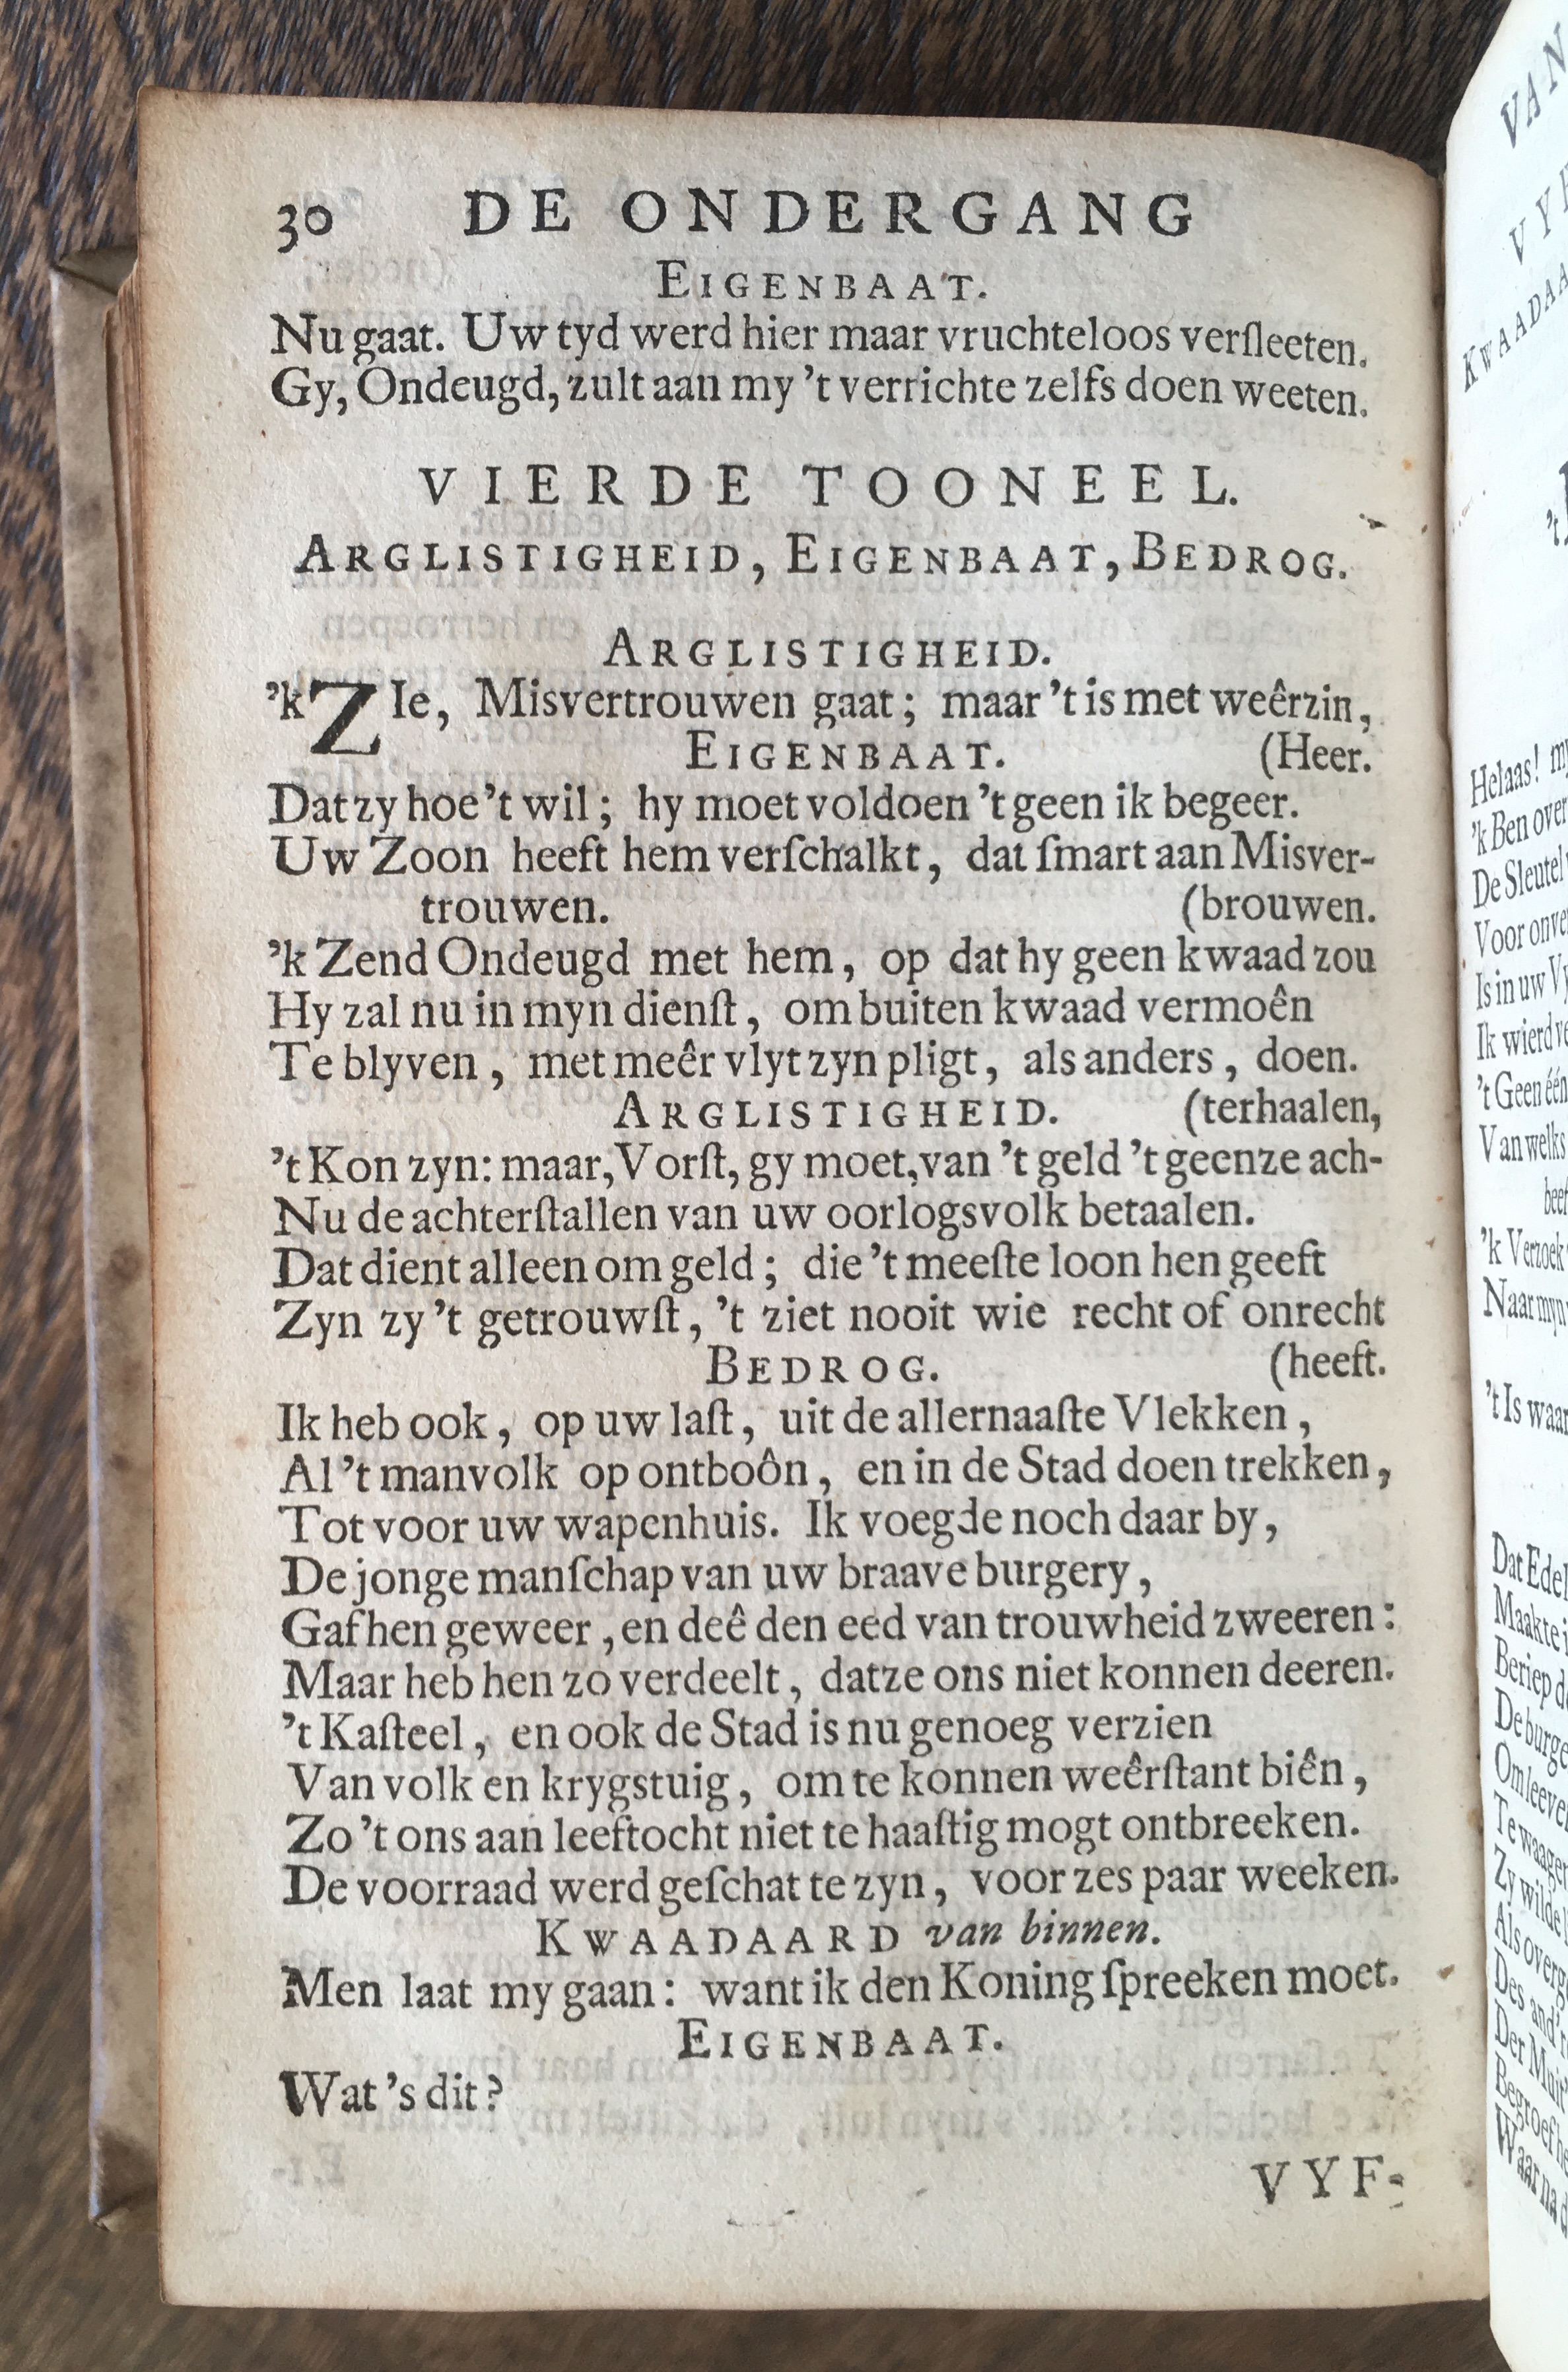 30 DE ONDERGANG
EIGENBAAT.
Nu gaat. Uw tyd werd hier maar vruchteloos verſleeten.
Gy, Ondeugd, zult aan my 't verrichte zelfs doen weeten.
VIERDE TOONEEL.
ARGLISTIGHEID, EIGENBAAT, BEDROG.
ARGLISTIGHEID.
'k ZIe, Misvertrouwen gaat; maar 't is met weêrzin,
EIGENBAAT. (Heer.
Dat zy hoe 't wil; hy moet voldoen 't geen ik begeer.
Uw Zoon heeft hem verſchalkt, dat ſmart aan Misver-
trouwen. (brouwen.
'k Zend Ondeugd met hem, op dat hy geen kwaad zou
Hy zal nu in myn dienſt, om buiten kwaad vermoên
Te blyven, met meêr vlyt zyn pligt, als anders, doen.
ARGLISTIGHEID. (terhaalen,
't Kon zyn: maar, Vorſt, gy moet, van 't geld 't geenze ach-
Nu de achterſtallen van uw oorlogsvolk betaalen.
Dat dient alleen om geld; die 't meeſte loon hen geeft
Zyn zy 't getrouwſt, 't ziet nooit wie recht of onrecht
BEDROG. (heeft.
Ik heb ook, op uw laſt, uit de allernaaſte Vlekken,
Al 't manvolk op ontboôn, en in de Stad doen trekken,
Tot voor uw wapenhuis. Ik voegde noch daar by,
De jonge manſchap van uw braave burgery,
Gaf hen geweer, en deê den eed van trouwheid zweeren:
Maar heb hen zo verdeelt, datze ons niet konnen deeren.
't Kaſteel, en ook de Stad is nu genoeg verzien
Van volk en krygstuig, om te konnen weêrſtant biên,
Zo 't ons aan leeftocht niet te haaſtig mogt ontbreeken.
De voorraad werd geſchat te zyn, voor zes paar weeken.
KWAADAARD van binnen.
Men laat my gaan: want ik den Koning ſpreeken moet.
EIGENBAAT.
Wat 's dit?
VYF-
VAN
KWAADAA
Helaas! my
'k Ben over
De Sleutel
Voor onve
Is in uw Vy
Ik wierd ve
't Geen één
Van welks
'k Verzoek
Naar myn
't Is waar
Dat Edel
Maakte i
Beriep d
De burge
Om leeven
Te waagen
Zy wilde
Als overg
Des and'r
Der Muit
Begroef he
Waar na d